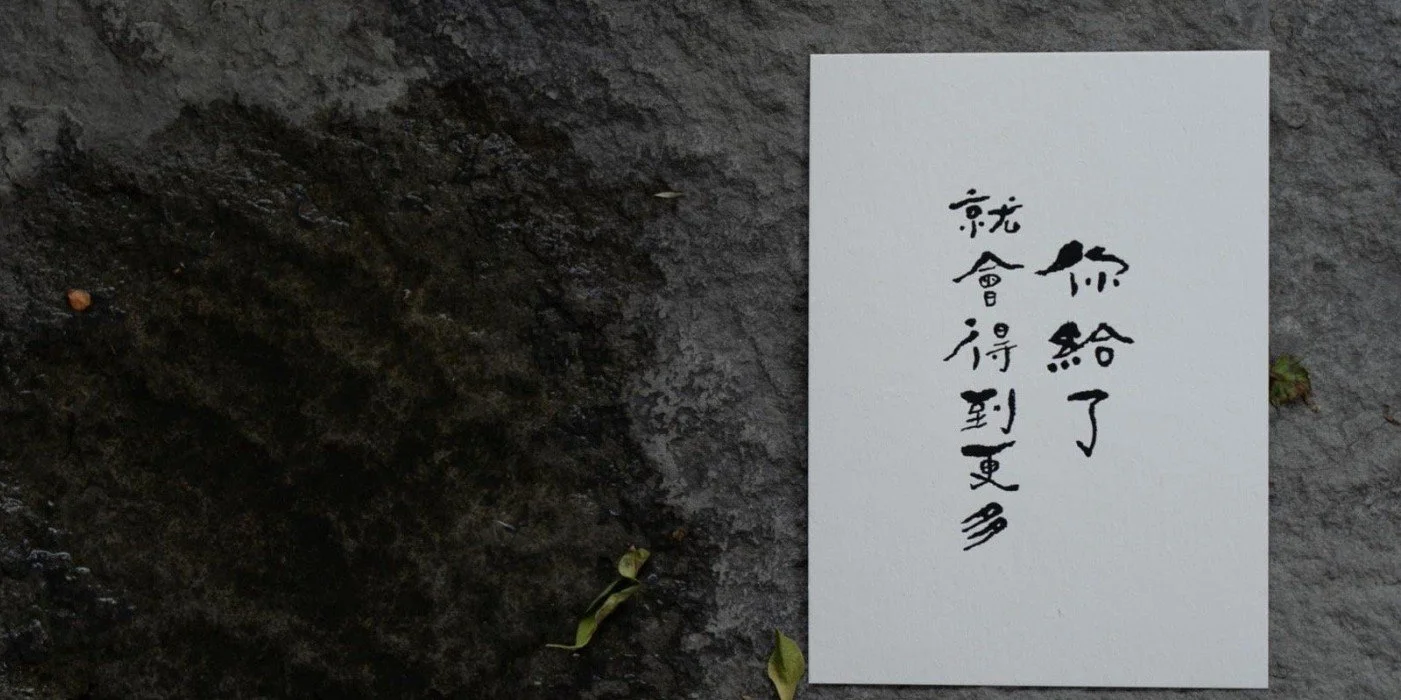 你給了
就會得到更多